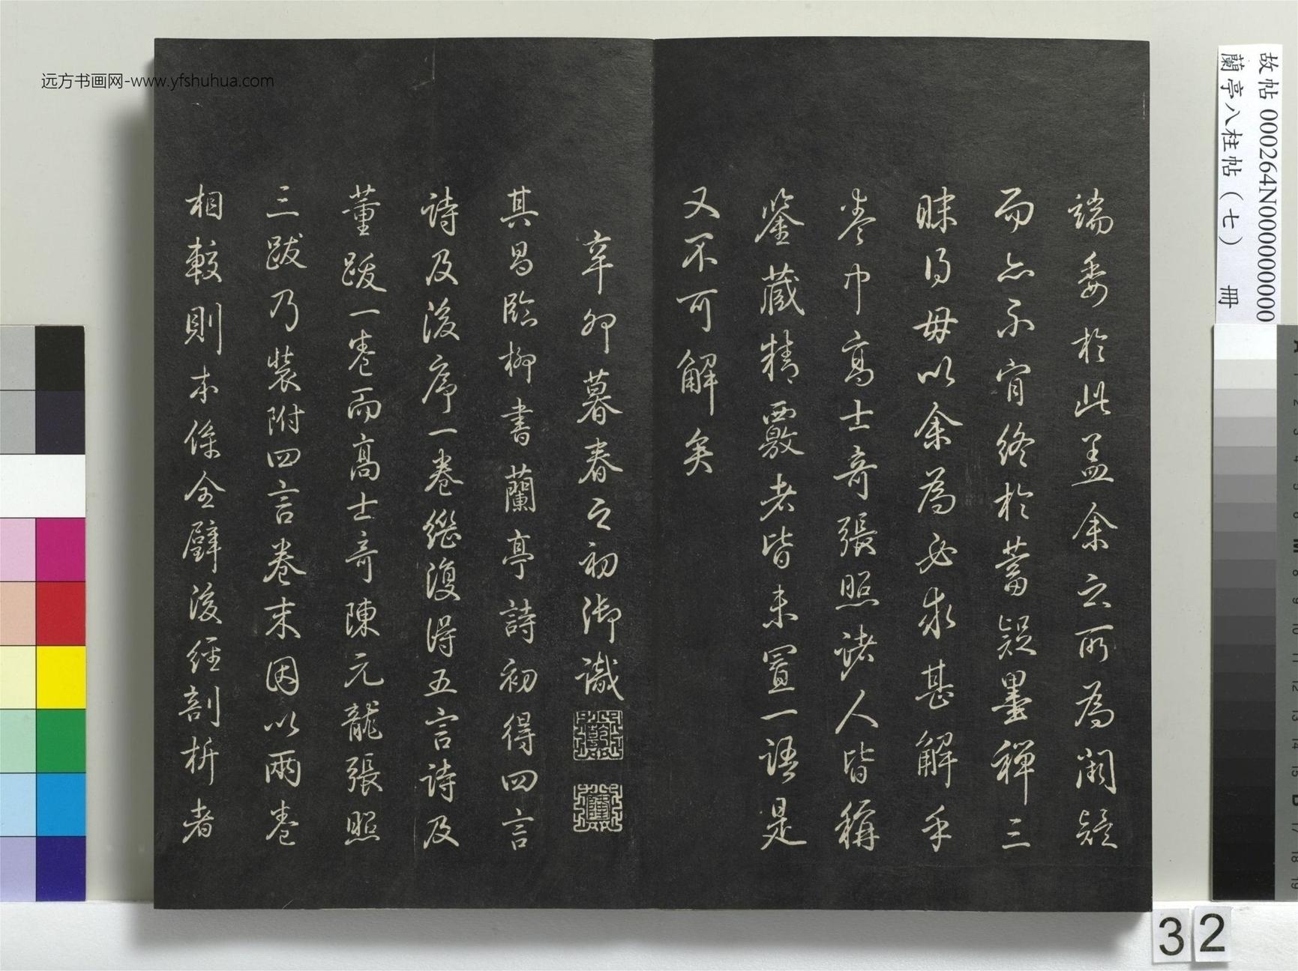 端委於此盖余之所為闕疑
而亦不肯終於蓄疑墨禪三
昧得毋以余為必求甚解乎
卷中高士奇張照諸人皆稱
鑒藏精覈者皆未置一語是
又不可解矣
辛卯暮春之初御識
其昌臨柳書蘭亭詩初得四言
詩及後序一卷繼復得五言詩及
董跋一卷而高士奇陳元龍張照
三跋乃裝附四言卷末因以兩卷
相較則本係全璧後經剖析者
远方书画网-www.yfshuhua.com
故帖 000264N000000000
蘭亭八柱帖（七） 冊
32